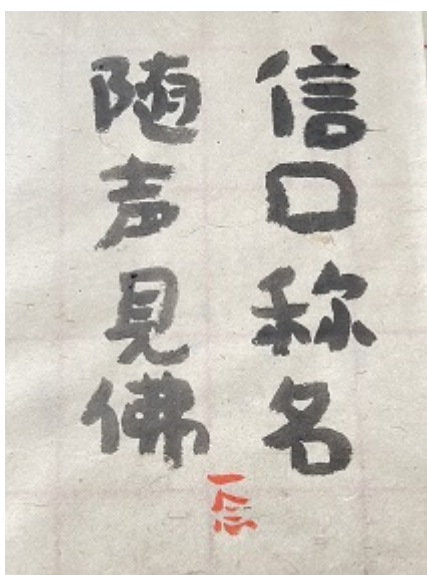 信口称名
随声見佛
一念